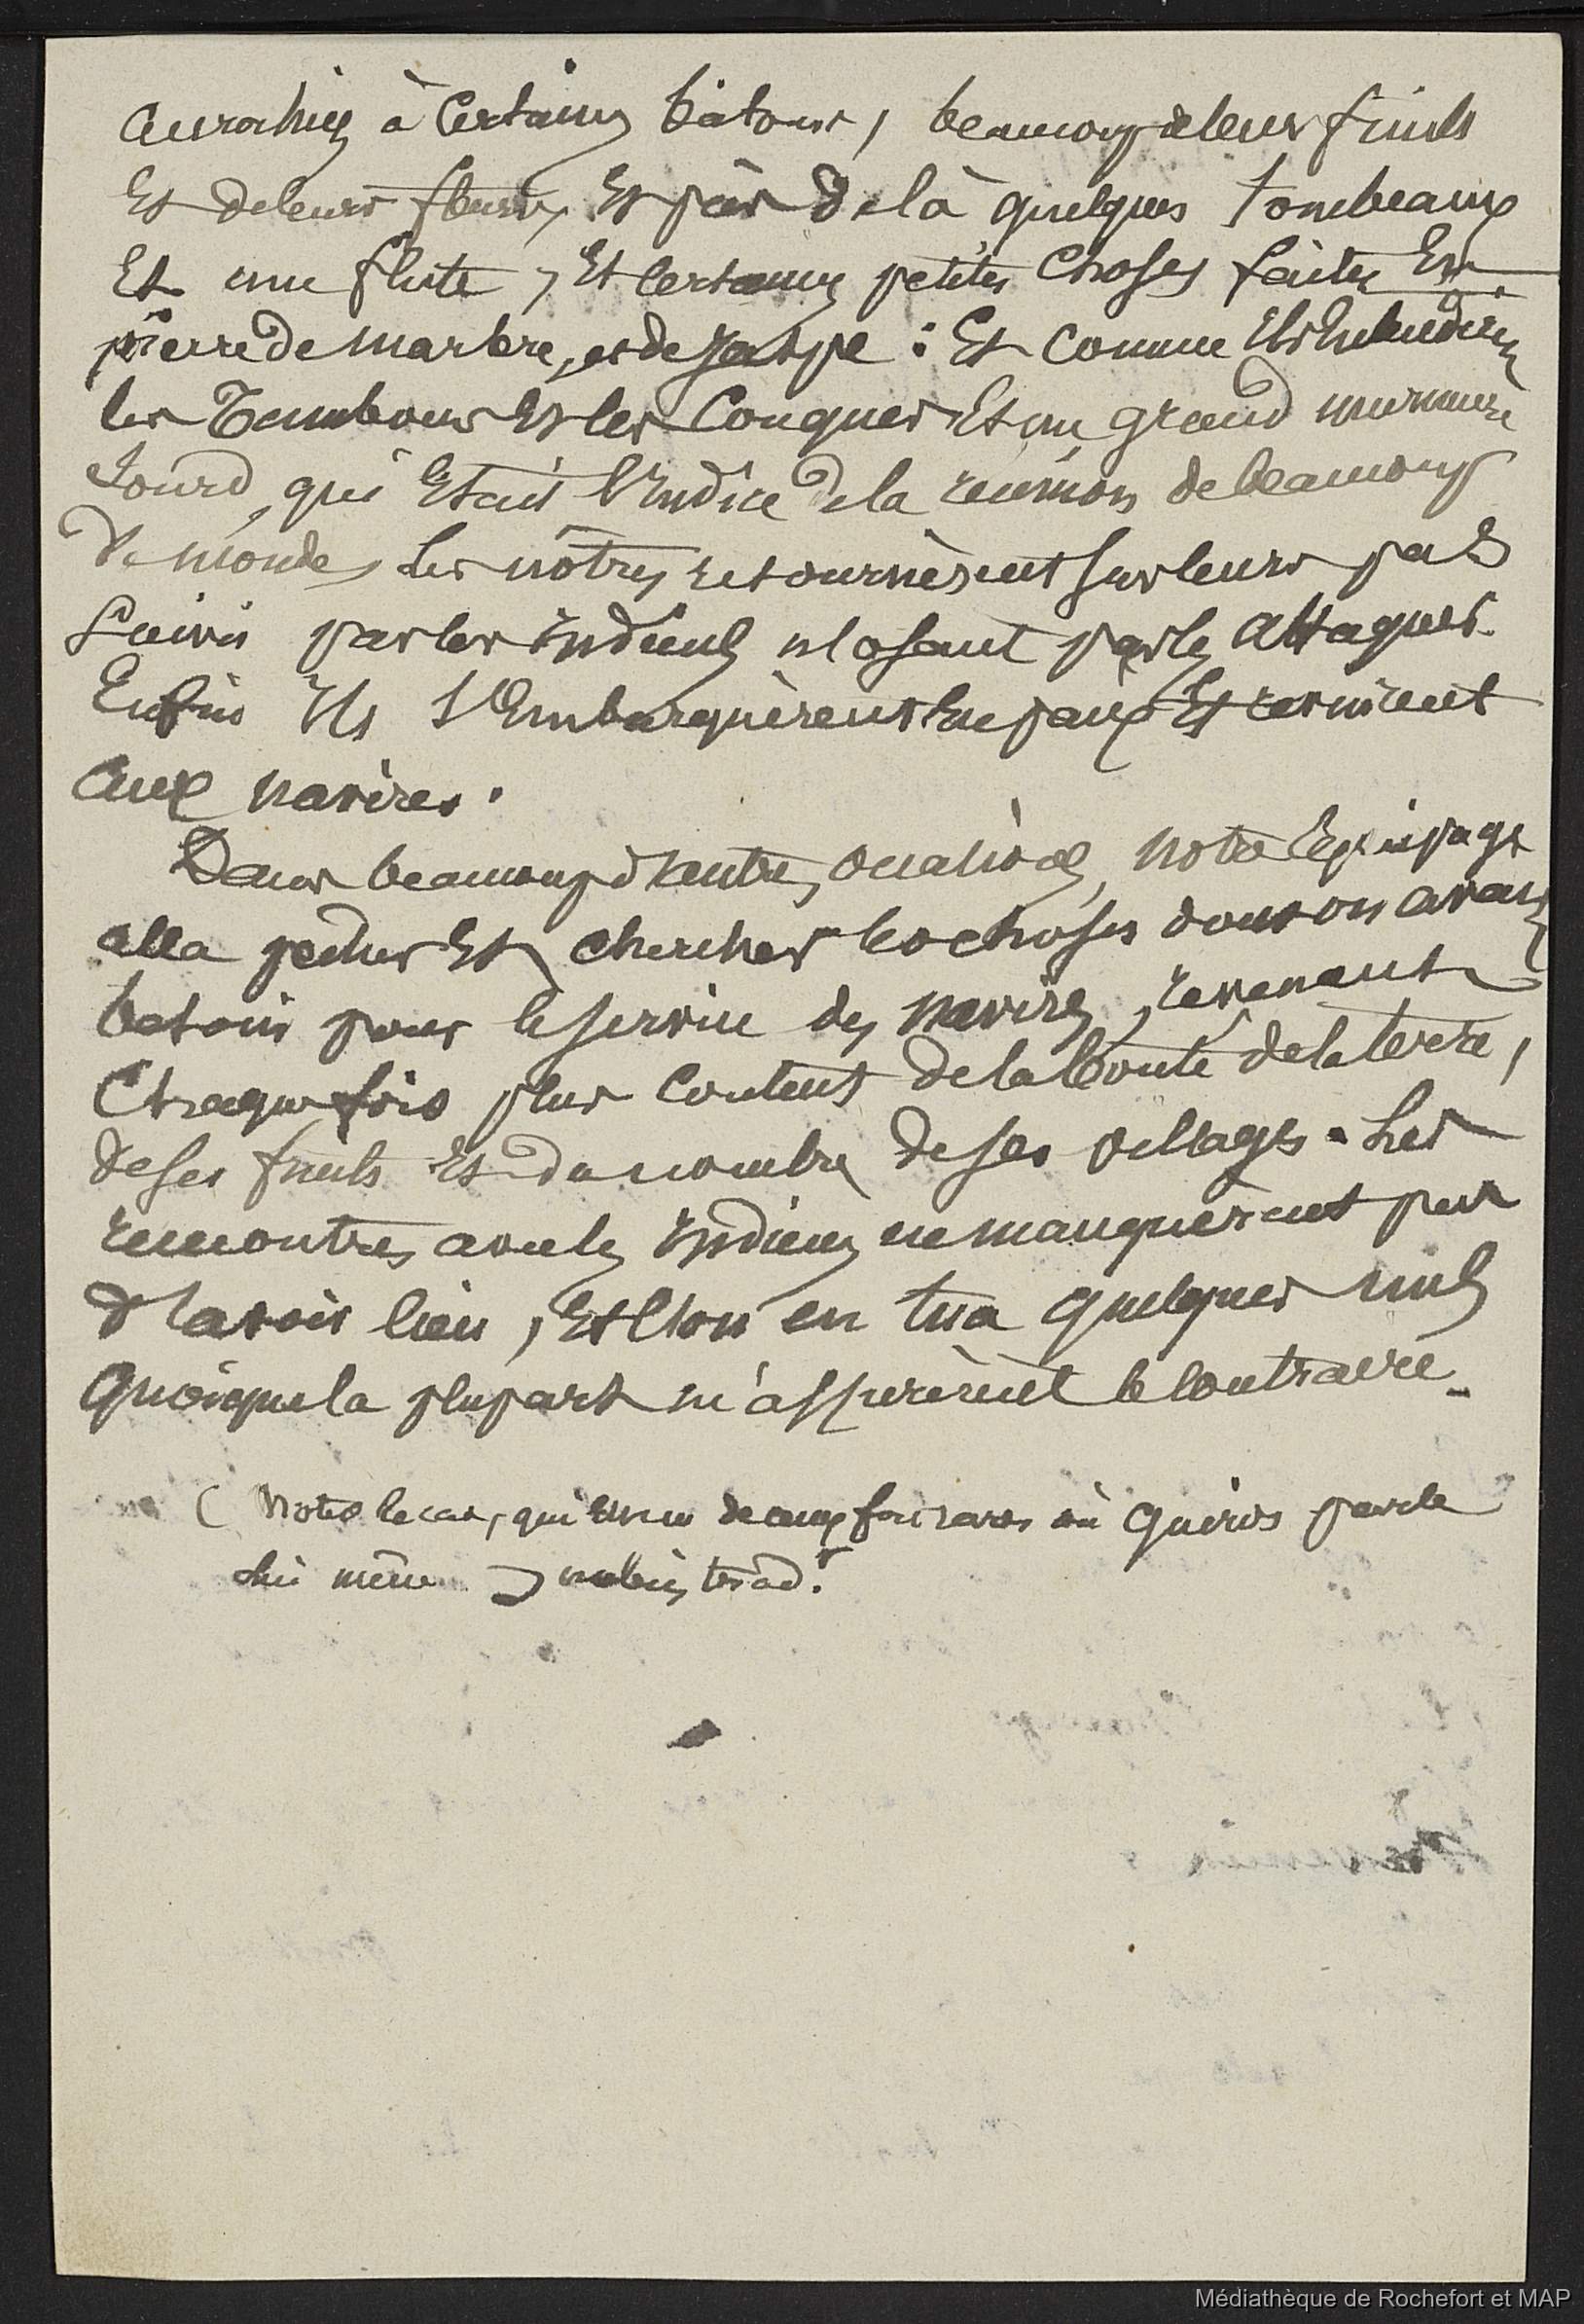 accrochés à certains bâtons, beaucoup de leurs fruits
Et de leurs fleurs, Et près de là quelques tombeaux
Et une flûte, Et certaines petites choses faites En
pierre de marbre, et de jaspe : Et comme Ils Entendirent
les Tambours Et les Conques Et un grand murmure
sourd, qui Etait l'Indice de la réunion de beaucoup
de monde, les nôtres retournèrent sur leurs pas
suivis par les Indiens n'osant pas les attaquer.
Enfin Ils s'Embarquèrent En paix Et revinrent
aux navires.
Dans beaucoup d'autres occasions, notre Equipage
alla pêcher Et chercher les choses dont on avait
besoin pour le service des navires, revenant
Chaque fois plus content de la bonté de la terre,
de ses fruits Et du nombre de ses villages. Les
rencontres avec les Indiens ne manquèrent pas
d'avoir lieu, Et l'on en tua quelques uns
quoique la plupart m'assurèrent le contraire.
( Notez le cas, qui est un de ceux fort rares où Quiros parle
lui même )